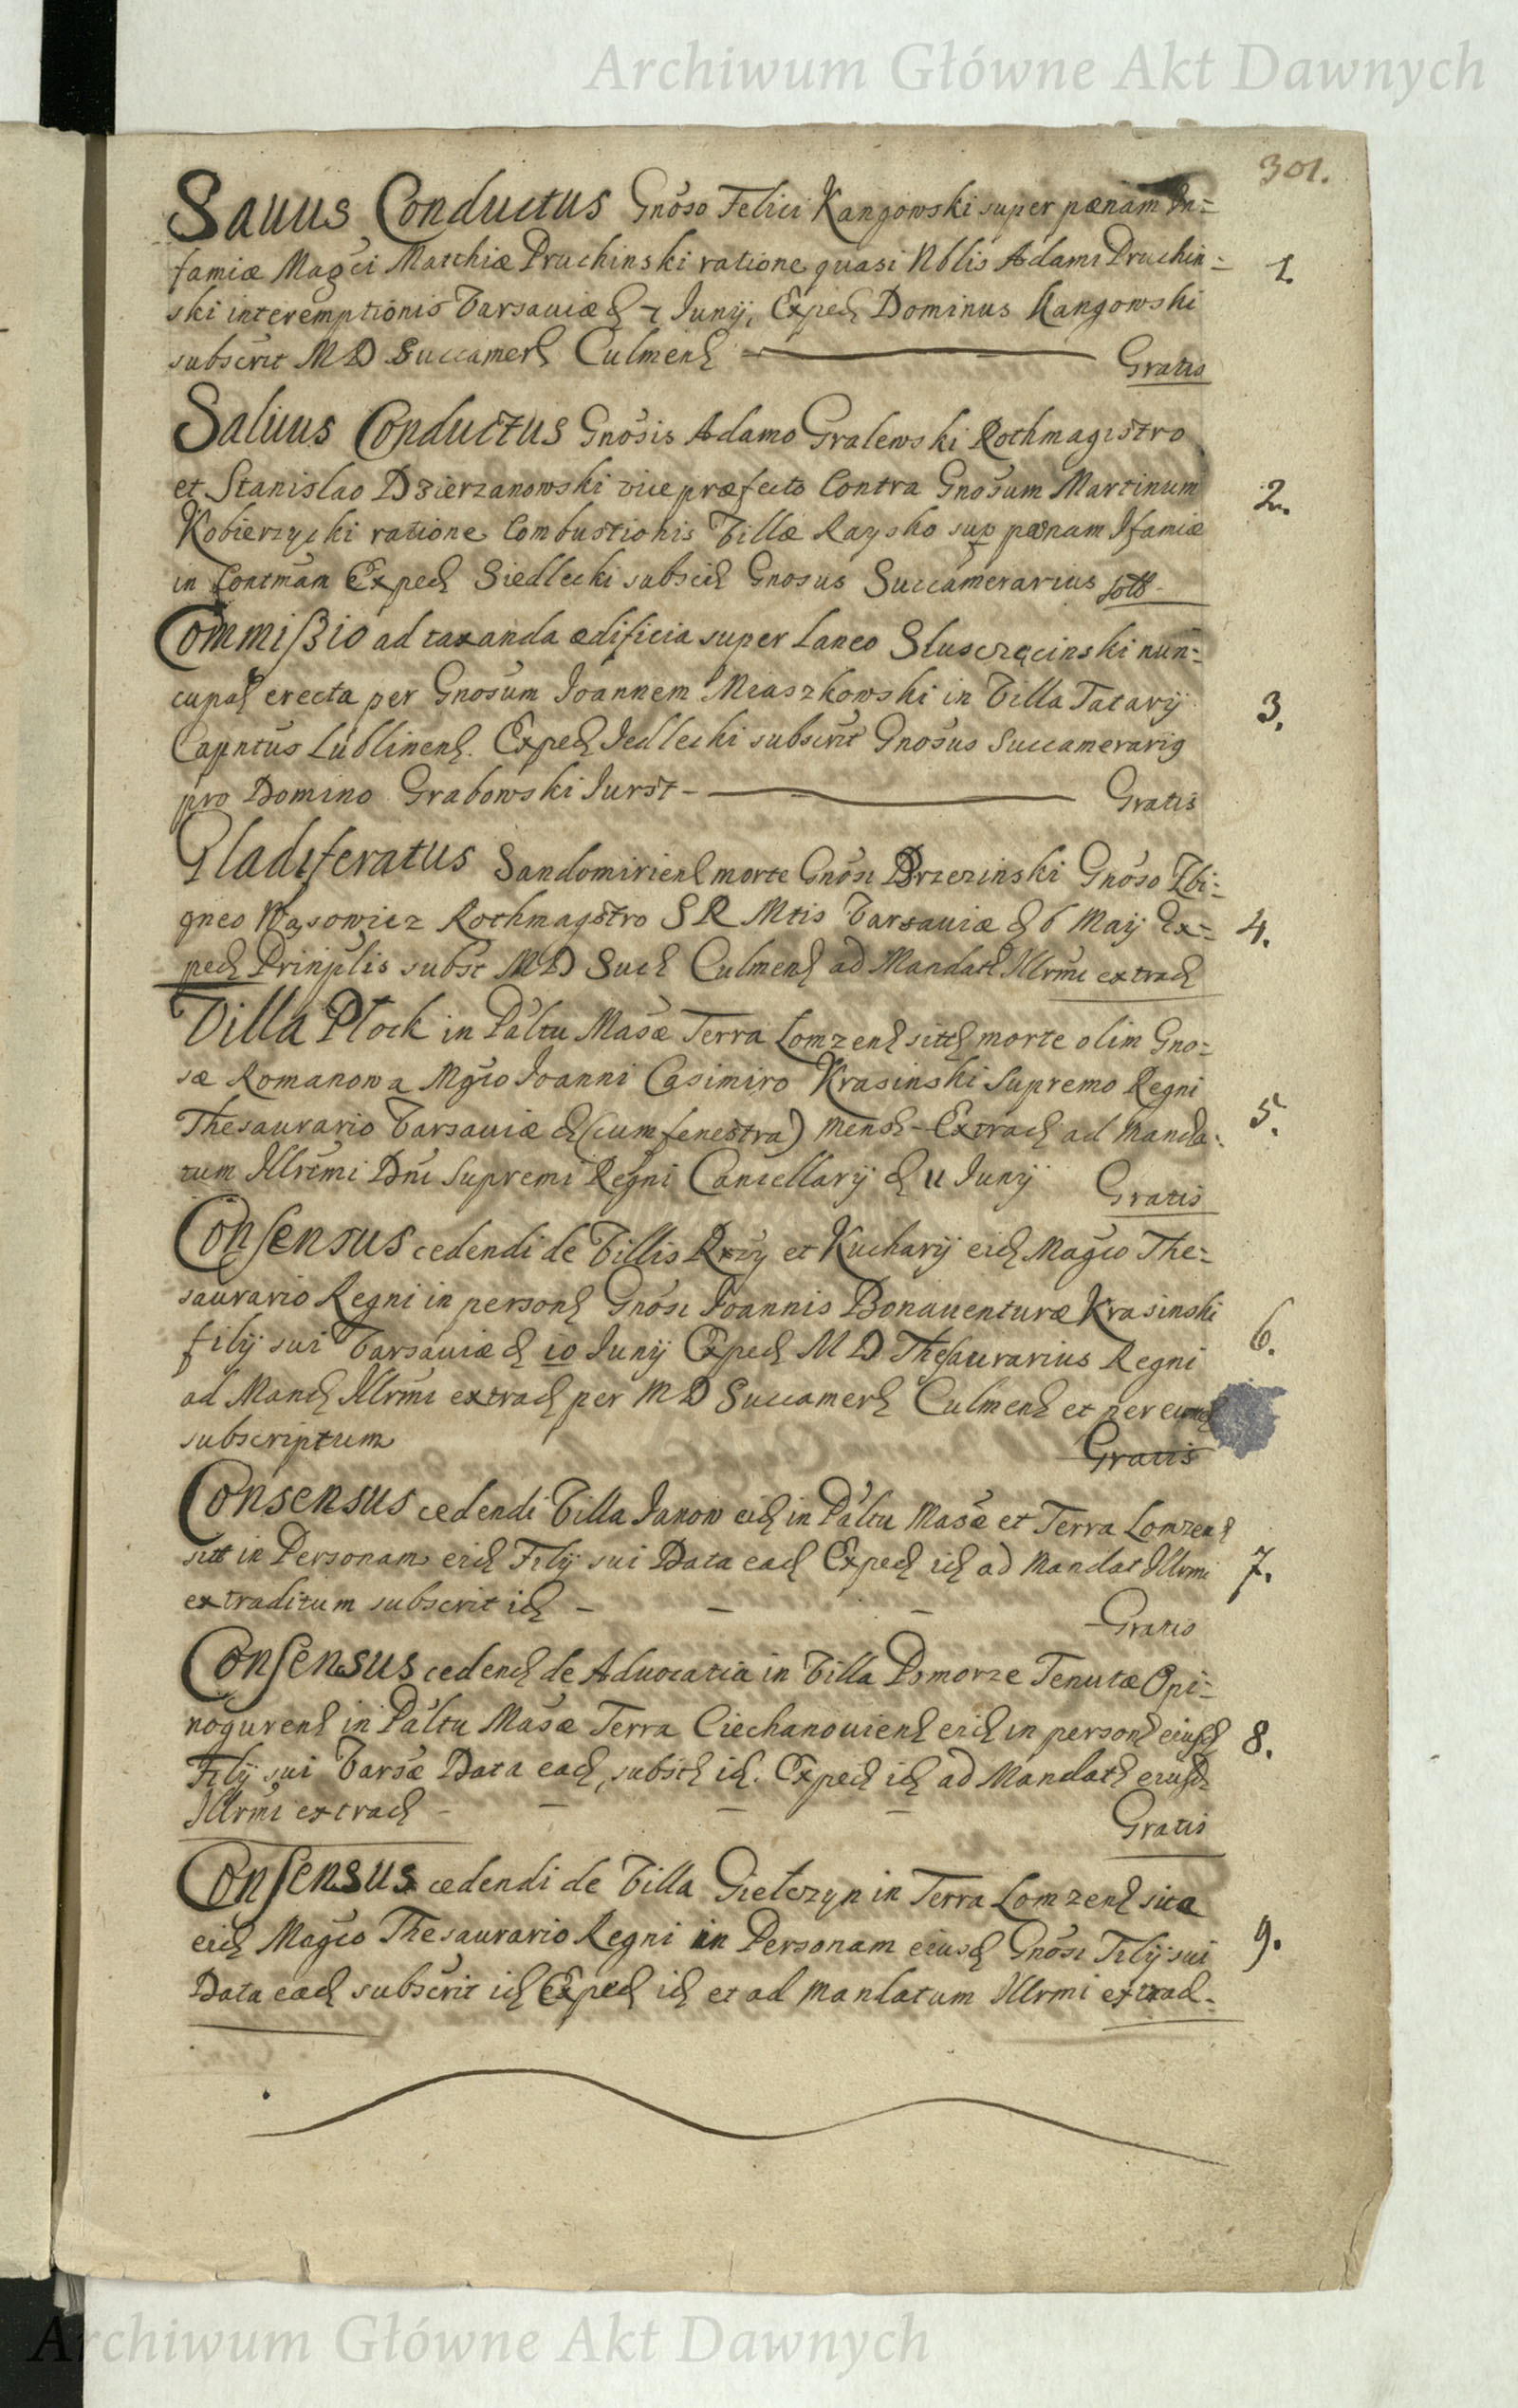 Archiwum Główne Akt Dawnych
301.
Sauus Conductus Gnōso Felici Kangowski super pœnam In=
famiæ Magci Matthiæ Pruchinski ratione quasi Nblis Adami Pruchin=
ski interemptionis Varsauiæ d 7 Junij, Exped Dominus Kangowski
subscrit MD Succamer Culmen Gratis
1.
Saluus Conductus Gnōsis Adamo Gralewski Rothmagistro
et Stanislao Dzierzanowski vice præfecto Contra Gnosum Martinum
Kobierzycki ratione Combustionis Villæ Raysko sup pœnam Ifamiæ
in Contmam Exped Siedlecki subscit Gnosus Succamerarius sott
2.
Commissio ad taxanda ædificia super Laneo Sluszczęcinski nun=
cupat erecta per Gnosum Joannem Miaszkowski in Villa Tatary
Capntus Lublinen. Exped Jedlecki subscrit Gnosus Succamerarig
pro Domino Grabowski Jurst - Gratis
3.
Gladiferatus Sandomirien morte Gnōsi Brzezinski Gnōso Zbi=
gneo Wąsowicz Rothmagstro SR Mtis Varsauiæ d 6 Maij Ex=
ped Prinplis subst MD Succ Culmen ad Mandat Illrmi extrad
4.
Villa Ptock in Páltu Masæ Terra Lomzen sitt morte olim Gno=
sæ Romanowa Mgco Joanni Casimiro Krasinski Supremo Regni
Thesaurario Varsauiæ d (cum fenestra) mens - Extrad ad Manda=
tum Illrimi Dni Supremi Regni Cancellarij d 11 Junij Gratis
5.
Consensus cedendi de Villis Rzy et Kucharij eid Magco The=
saurario Regni in person Gnōsi Joannis Bonauenturæ Krasinski
filij sui Varsauiæ d 10 Junij Exped MD Thesaurarius Regni
ad Mand Illrmi extrad per MD Succamer Culmen et per eund
subscriptum Gratis
6.
Consensus cedendi Villa Janow eid in Páltu Masæ et Terra Lomzen
sitt in Personam eid Filij sui Data ead Exped id ad Mandat Illrmi
extraditum subscrit id - - - - Gratis
7.
Consensus cedend de Aduocatia in Villa Pomorze Tenutæ Opi=
noguren in Páltu Masæ Terra Ciechanouien eid in person eiusd
Filij sui Varsæ Data ead, subsct id. Exped id ad Mandat eiusd
Illrmi extrad - - - - Gratis
8.
Consensus cedendi de Villa Gietczyn in Terra Lomzen sita
eid Magco Thesaurario Regni in Personam eiusd Gnōsi Filij sui
Data ead subscrit id Exped id et ad mandatum Illrmi extrad-
9.
Archiwum Główne Akt Dawnych